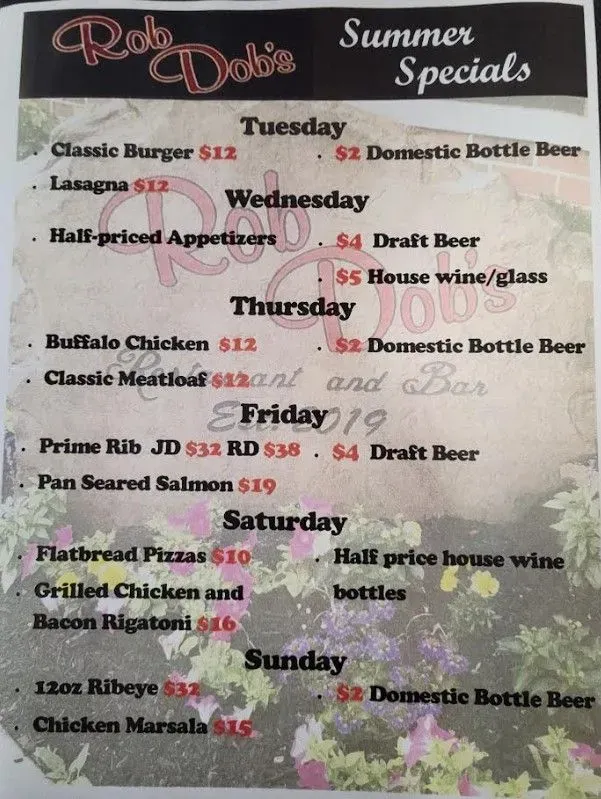 Rob Dob's
Summer
Specials
Tuesday
· Classic Burger $12
· $2 Domestic Bottle Beer
· Lasagna $12
Wednesday
· Half-priced Appetizers
· $4 Draft Beer
· $5 House wine/glass
Thursday
· Buffalo Chicken $12
· $2 Domestic Bottle Beer
· Classic Meatloaf $12
Friday
· Prime Rib JD $32 RD $38
· $4 Draft Beer
· Pan Seared Salmon $19
Saturday
· Flatbread Pizzas $10
· Half price house wine
bottles
· Grilled Chicken and
Bacon Rigatoni $16
Sunday
· 12oz Ribeye $32
· $2 Domestic Bottle Beer
· Chicken Marsala $15
Rob
Dob's
Restaurant and Bar
Est. 2019